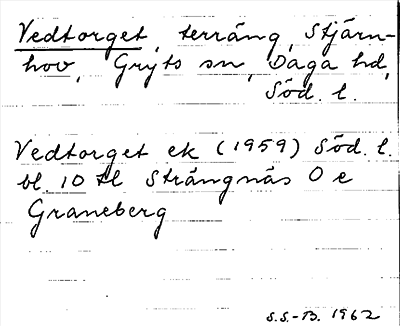 Vedtorget, terräng, Stjärn-
hov, Gryts sn, Daga hd,
Söd. l.
Vedtorget ek (1959) Söd. l.
bl. 10 tl Strängnäs O e
Graneberg
S.S.-B. 1962